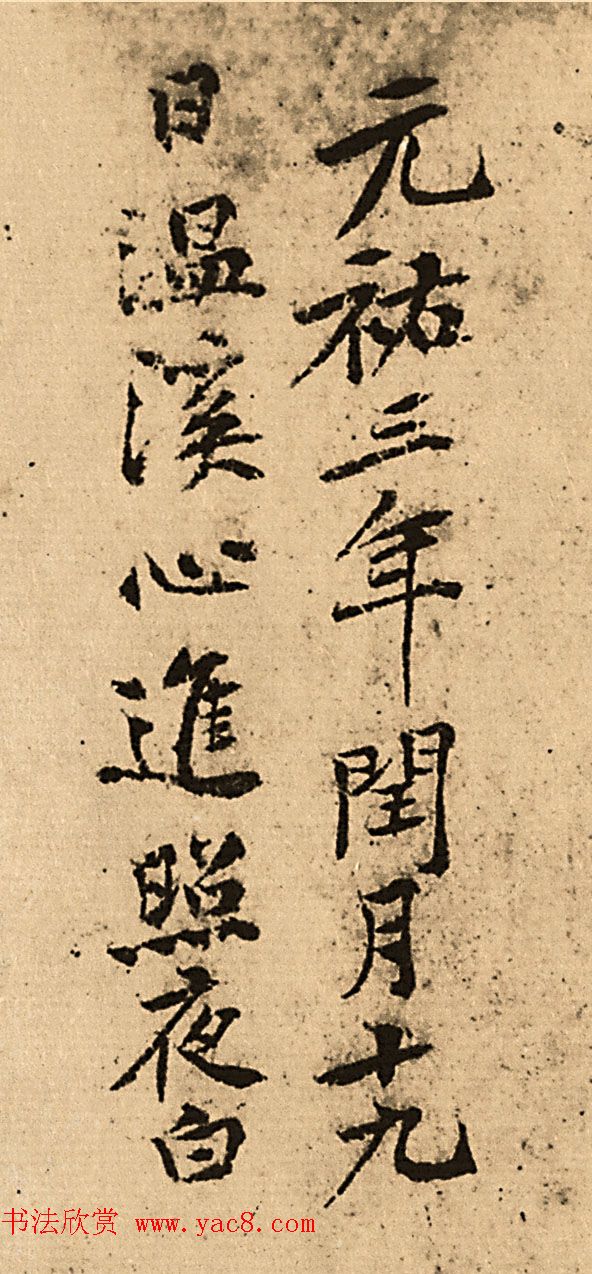 元祐三年閏月十九
日溫溪心進照夜白
书法欣赏 www.yac8.com